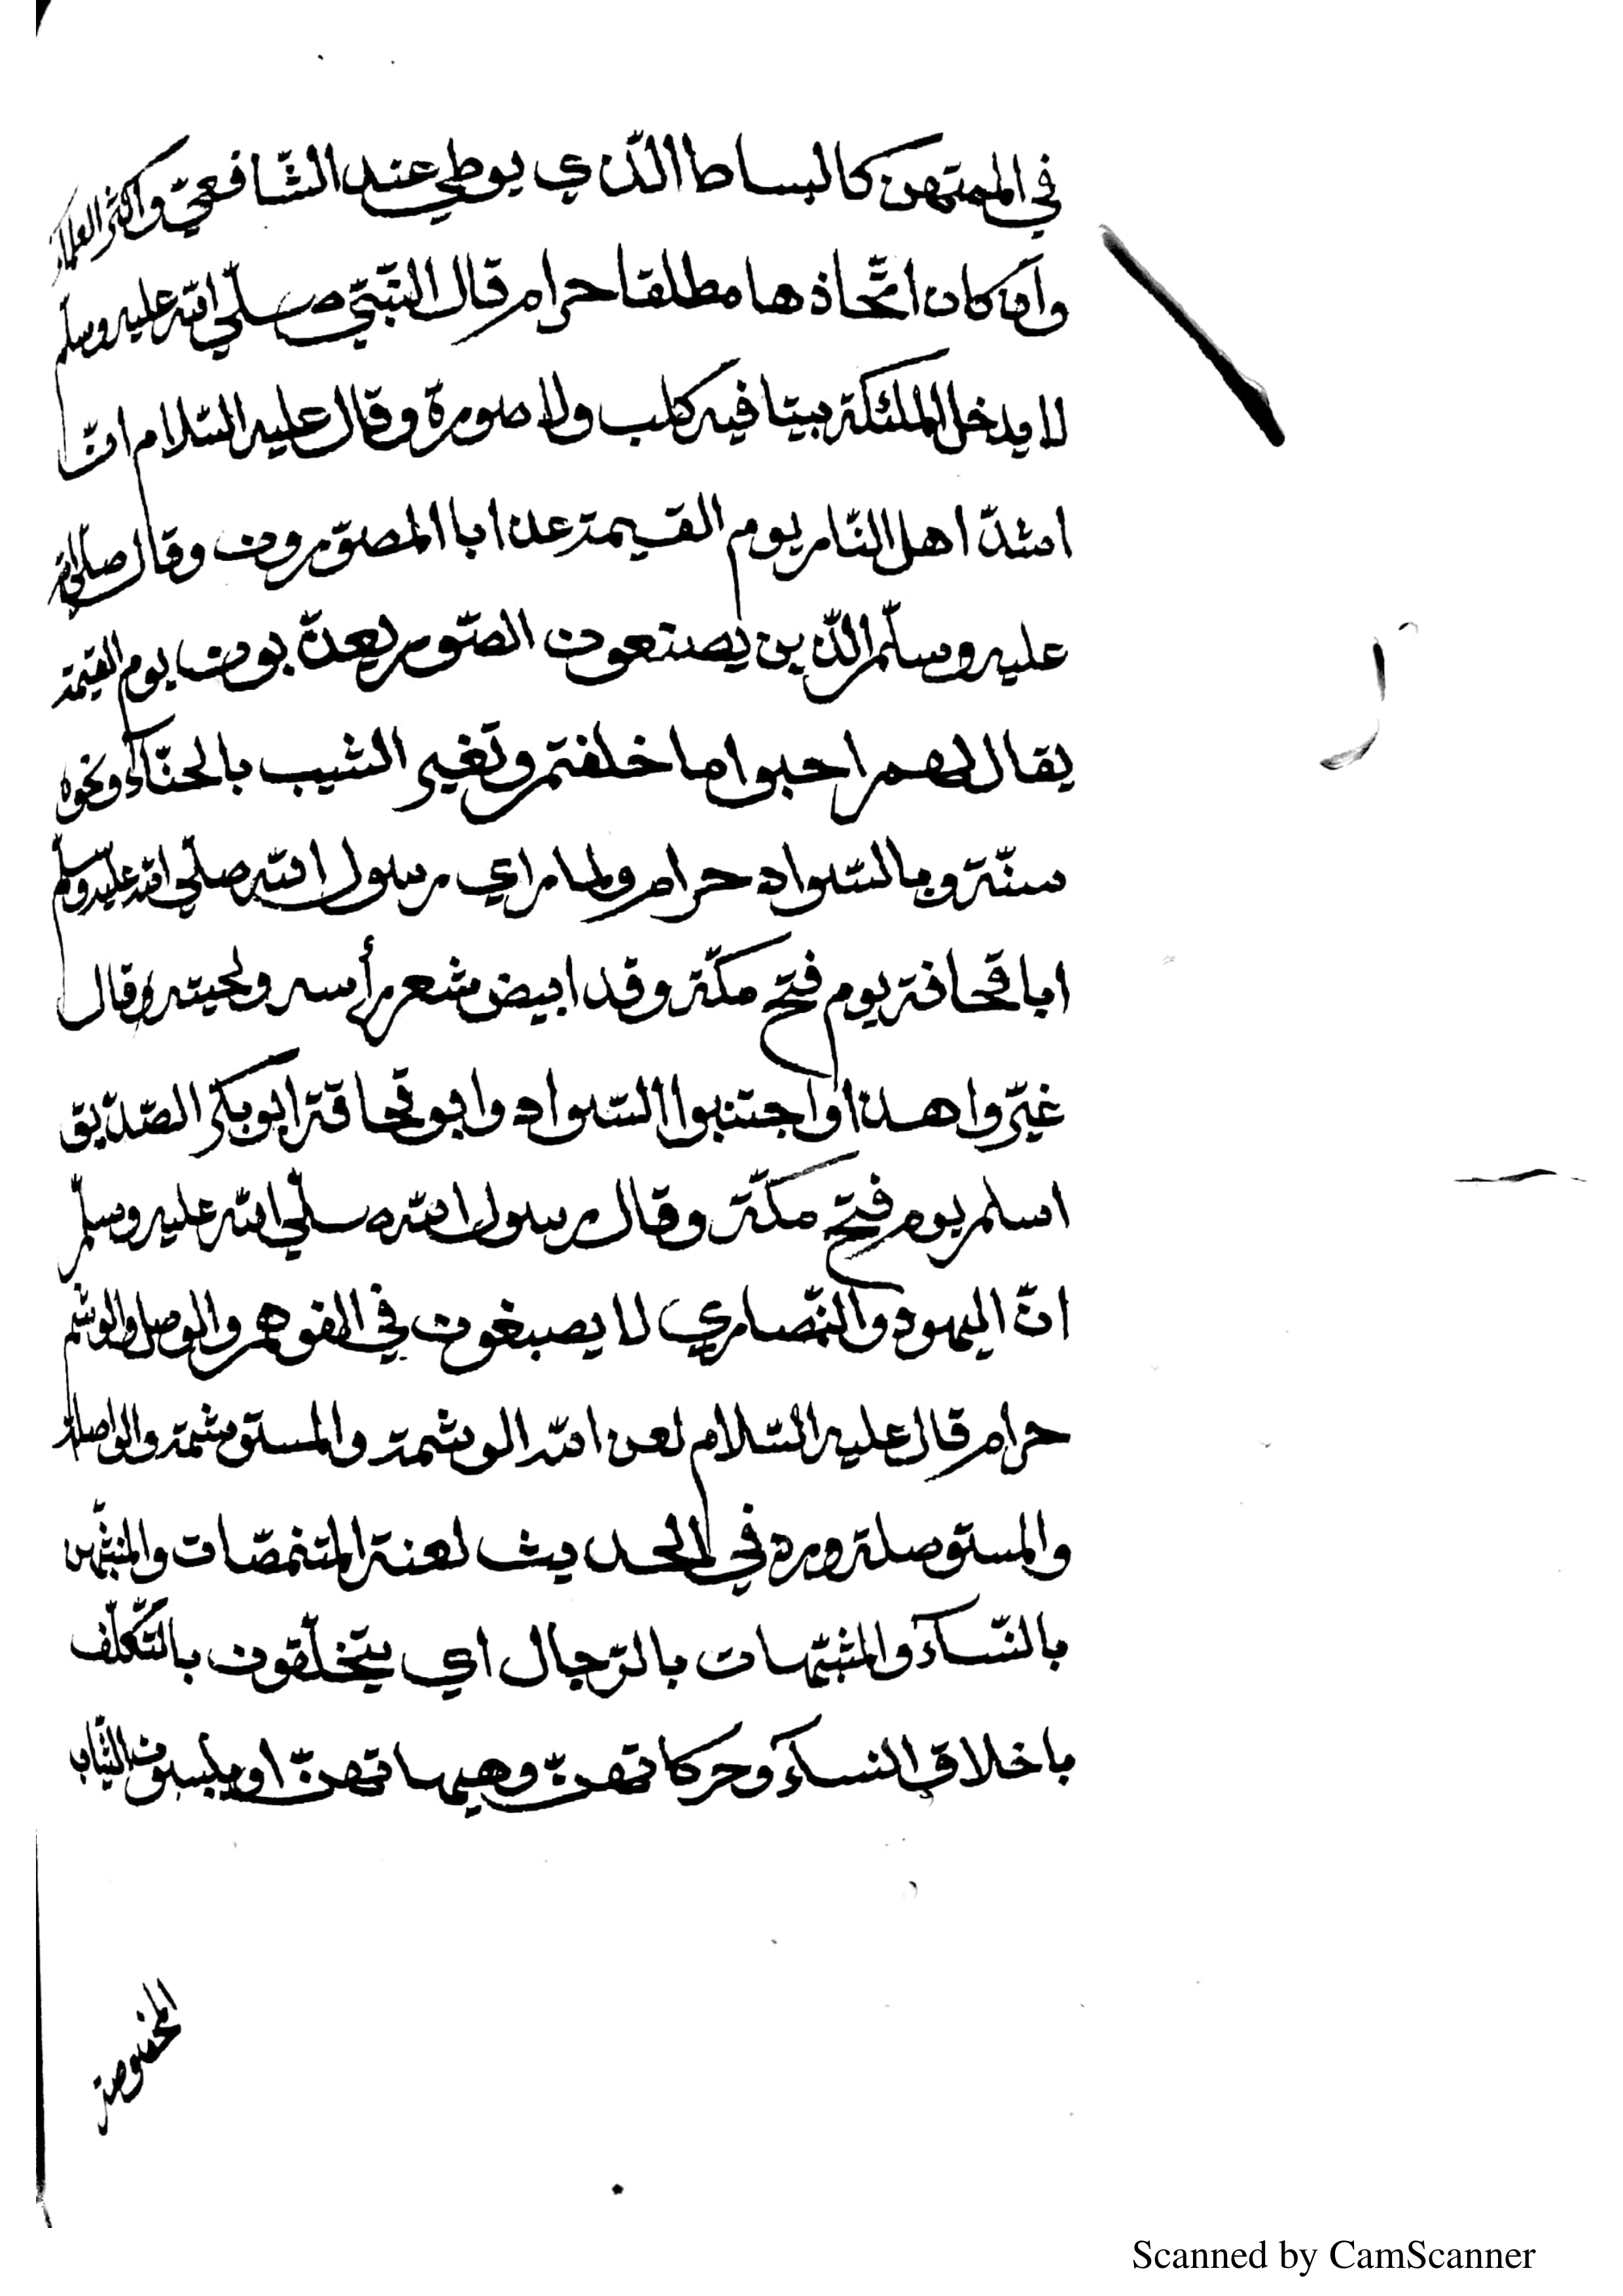 في الممتهن كالبساط الّذي يوطي عند الشّافعيّ واكثر العلماء
وان كان اتّخاذها مطلقا حرام قال النّبيّ صلّي الله عليه وسلّم
لا يدخل الملئكة بيتا فيه كلب ولا صورة وقال عليه السّلام انّ
اشدّ اهل النّار يوم القيمة عذابا المصوّرون وقال صلّي الله
عليه وسلّم الّذين يصنعون الصّور يعذّبون يوم القيمة
يقال لهم احيوا ما خلقتم وتغير الشيب بالحنّاء ونحوه
سنّة وبالسّواد حرام ولما راي رسول الله صلّي الله عليه وسلّم
ابا قحافة يوم فتح مكّة وقد ابيض شعر رأسه ولحيته وقال
غيّروا هذا واجتنبوا السّواد وابو قحافة ابو بكر الصّدّيق
اسلم يوم فتح مكّة وقال رسول الله صلّي الله عليه وسلّم
انّ اليهود والنّصاري لا يصبغون فخالفوهم والوصل والوشم
حرام قال عليه السّلام لعن الله الوشمة والمستوشمة والواصلة
والمستوصلة ورد في الحديث لعنة المتنمّصات والمتشبّهين
بالنّساء والمتشبّهات بالرّجال اي يتخلّقون بالتّكلّف
باخلاق النساء وحركاتهنّ وهيهاتهنّ او يلبسون الثّياب
المخصوصة
Scanned by CamScanner